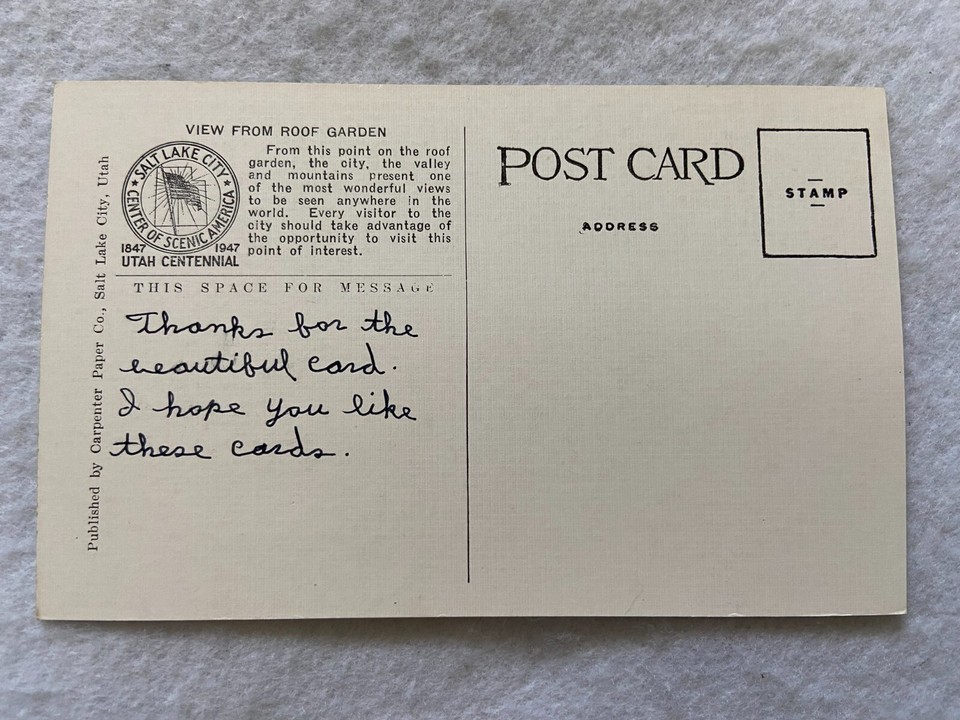 VIEW FROM ROOF GARDEN
SALT LAKE CITY
CENTER OF SCENIC AMERICA
1847 1947
UTAH CENTENNIAL
From this point on the roof
garden, the city, the valley
and mountains present one
of the most wonderful views
to be seen anywhere in the
world. Every visitor to the
city should take advantage of
the opportunity to visit this
point of interest.
THIS SPACE FOR MESSAGE
Thanks for the
beautiful card.
I hope you like
these cards.
Published by Carpenter Paper Co., Salt Lake City, Utah
POST CARD
ADDRESS
STAMP